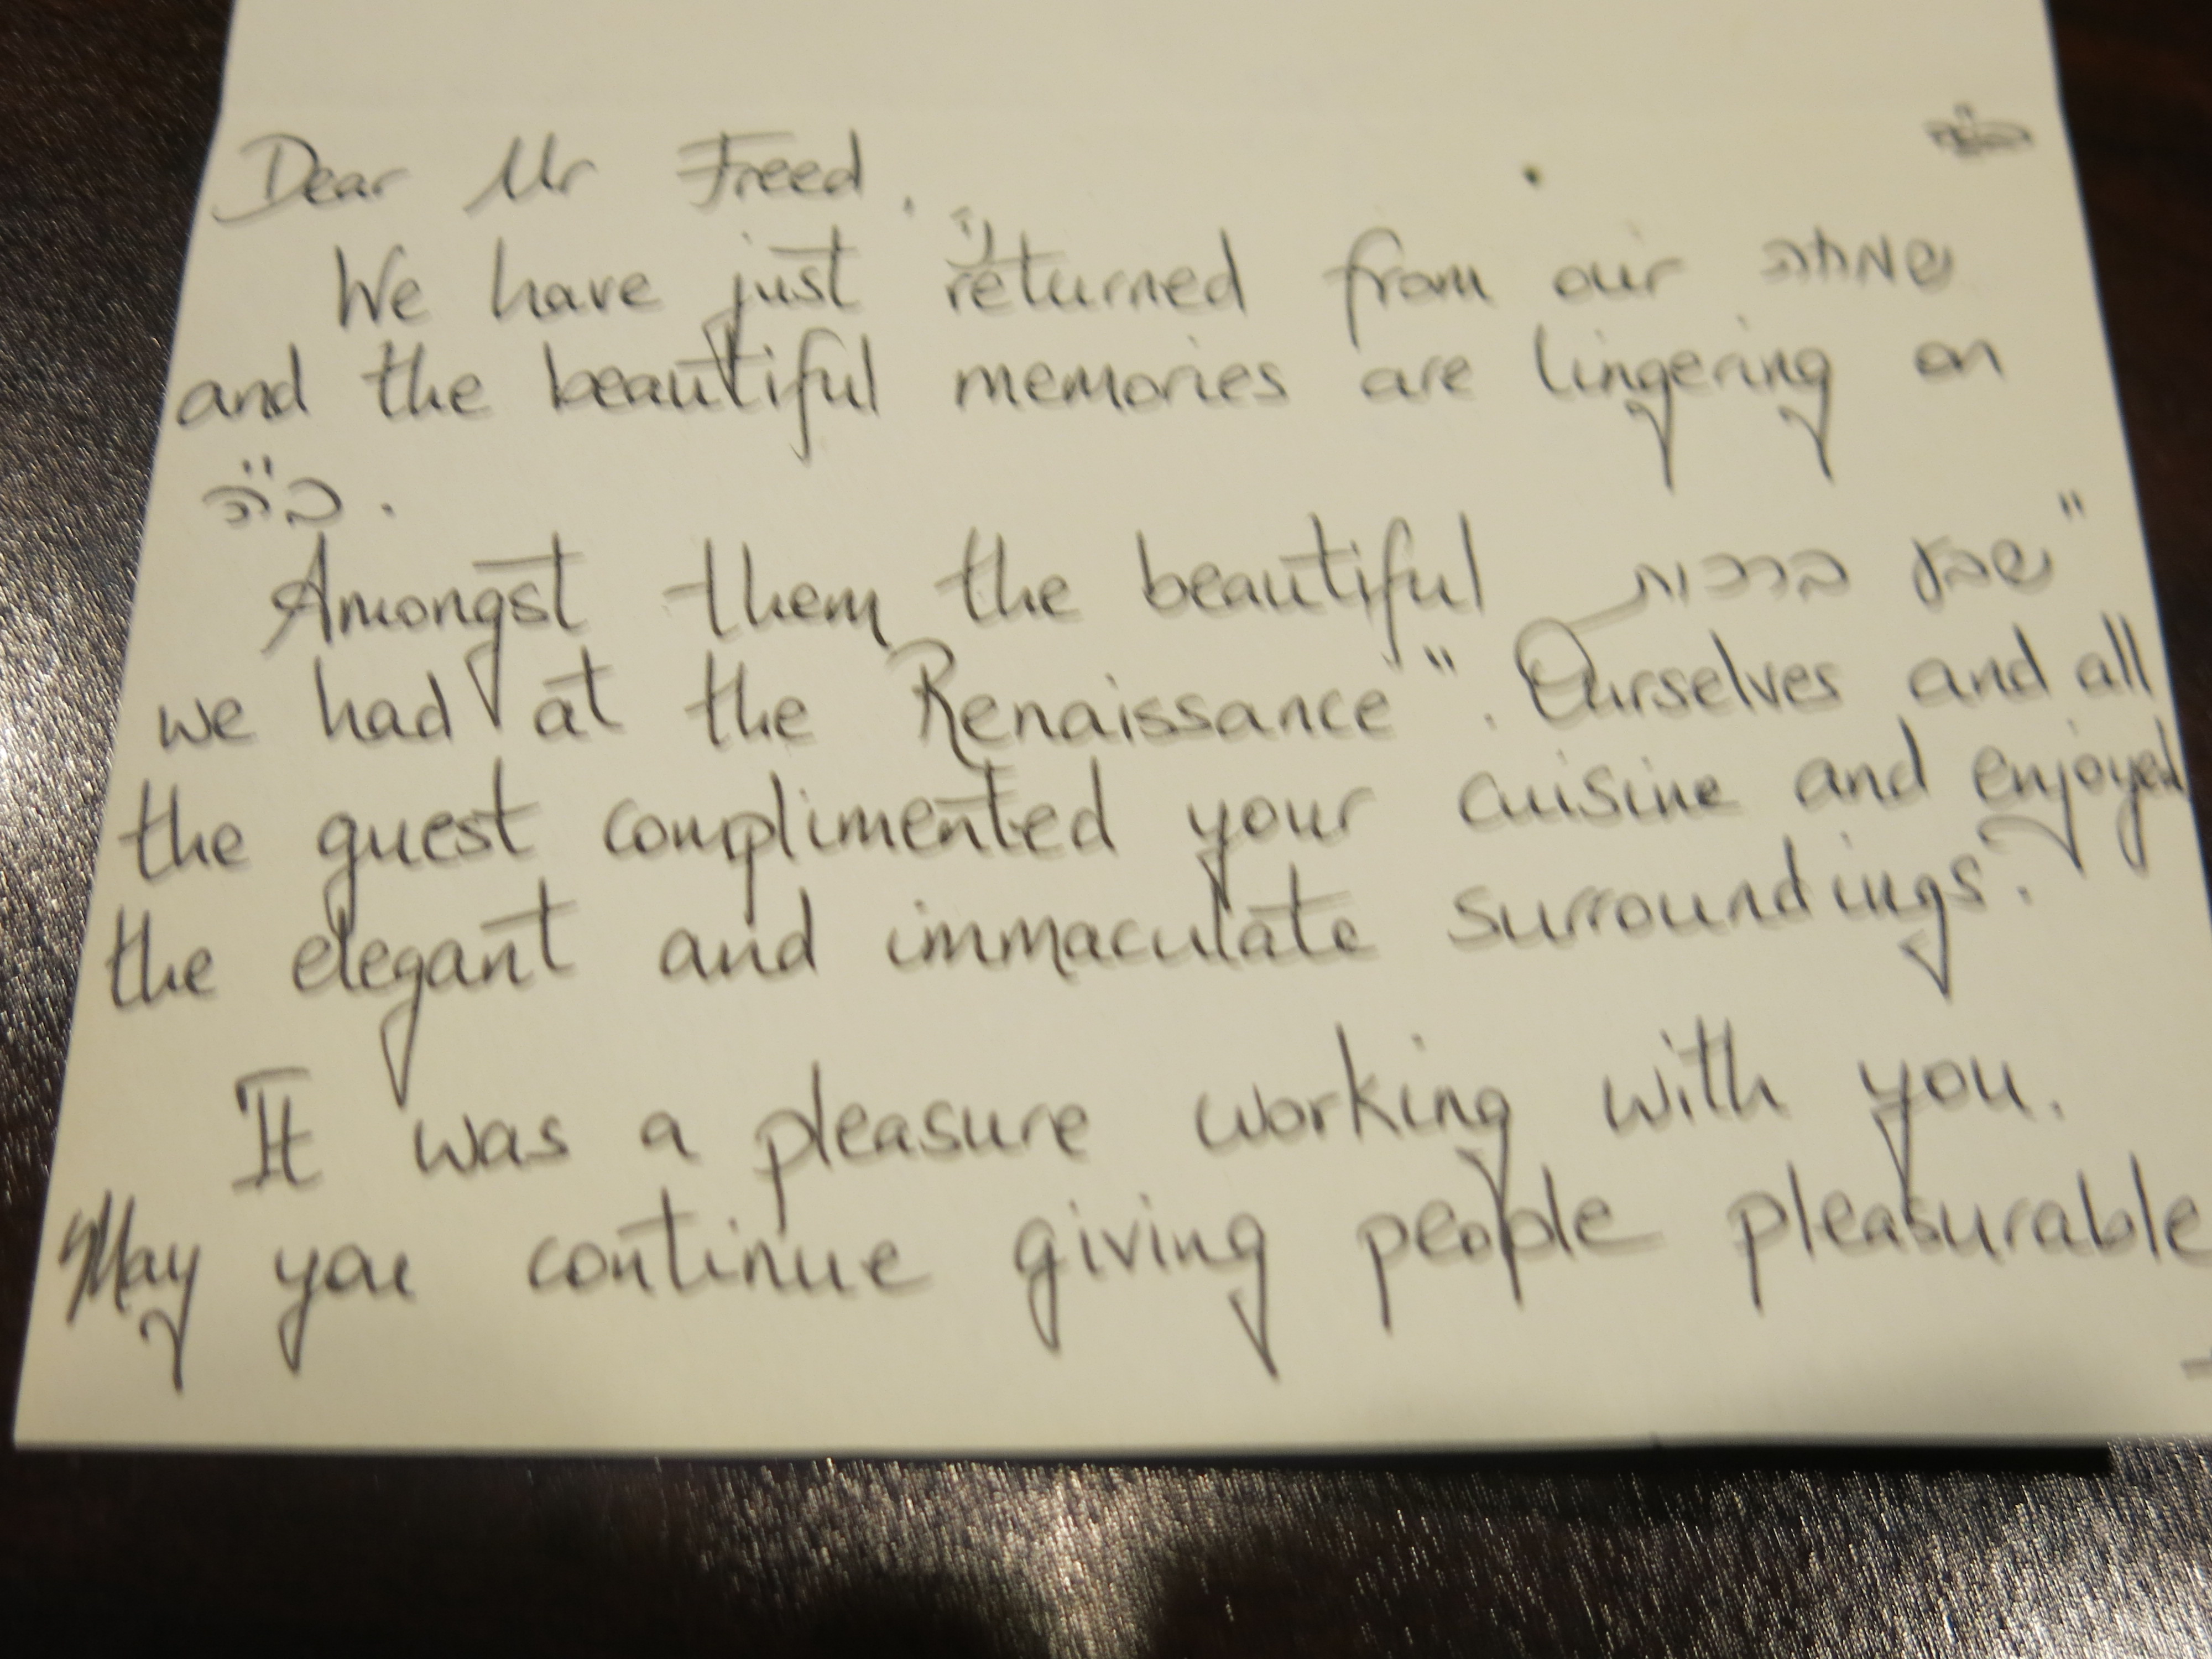 Dear Mr Freed,
We have just returned from our שמחה
and the beautiful memories are lingering on
.
Amongst them the beautiful שבע ברכות"
we had at the Renaissance". Ourselves and all
the guest complimented your cuisine and enjoyed
the elegant and immaculate surroundings.
It was a pleasure working with you.
May you continue giving people pleasurable